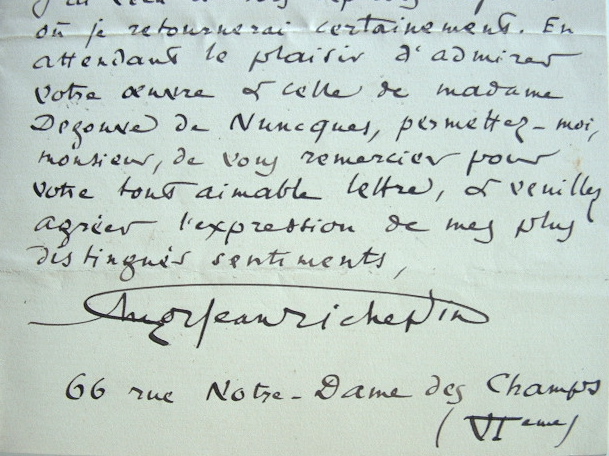 où je retournerai certainement. En
attendant le plaisir d'admirer
votre œuvre & celle de madame
Degouve de Nuncques, permettez-moi,
monsieur, de vous remercier pour
votre tout aimable lettre, & veuillez
agréer l'expression de mes plus
distingués sentiments,
Jean Richepin
66 rue Notre-Dame des Champs
(VIeme)